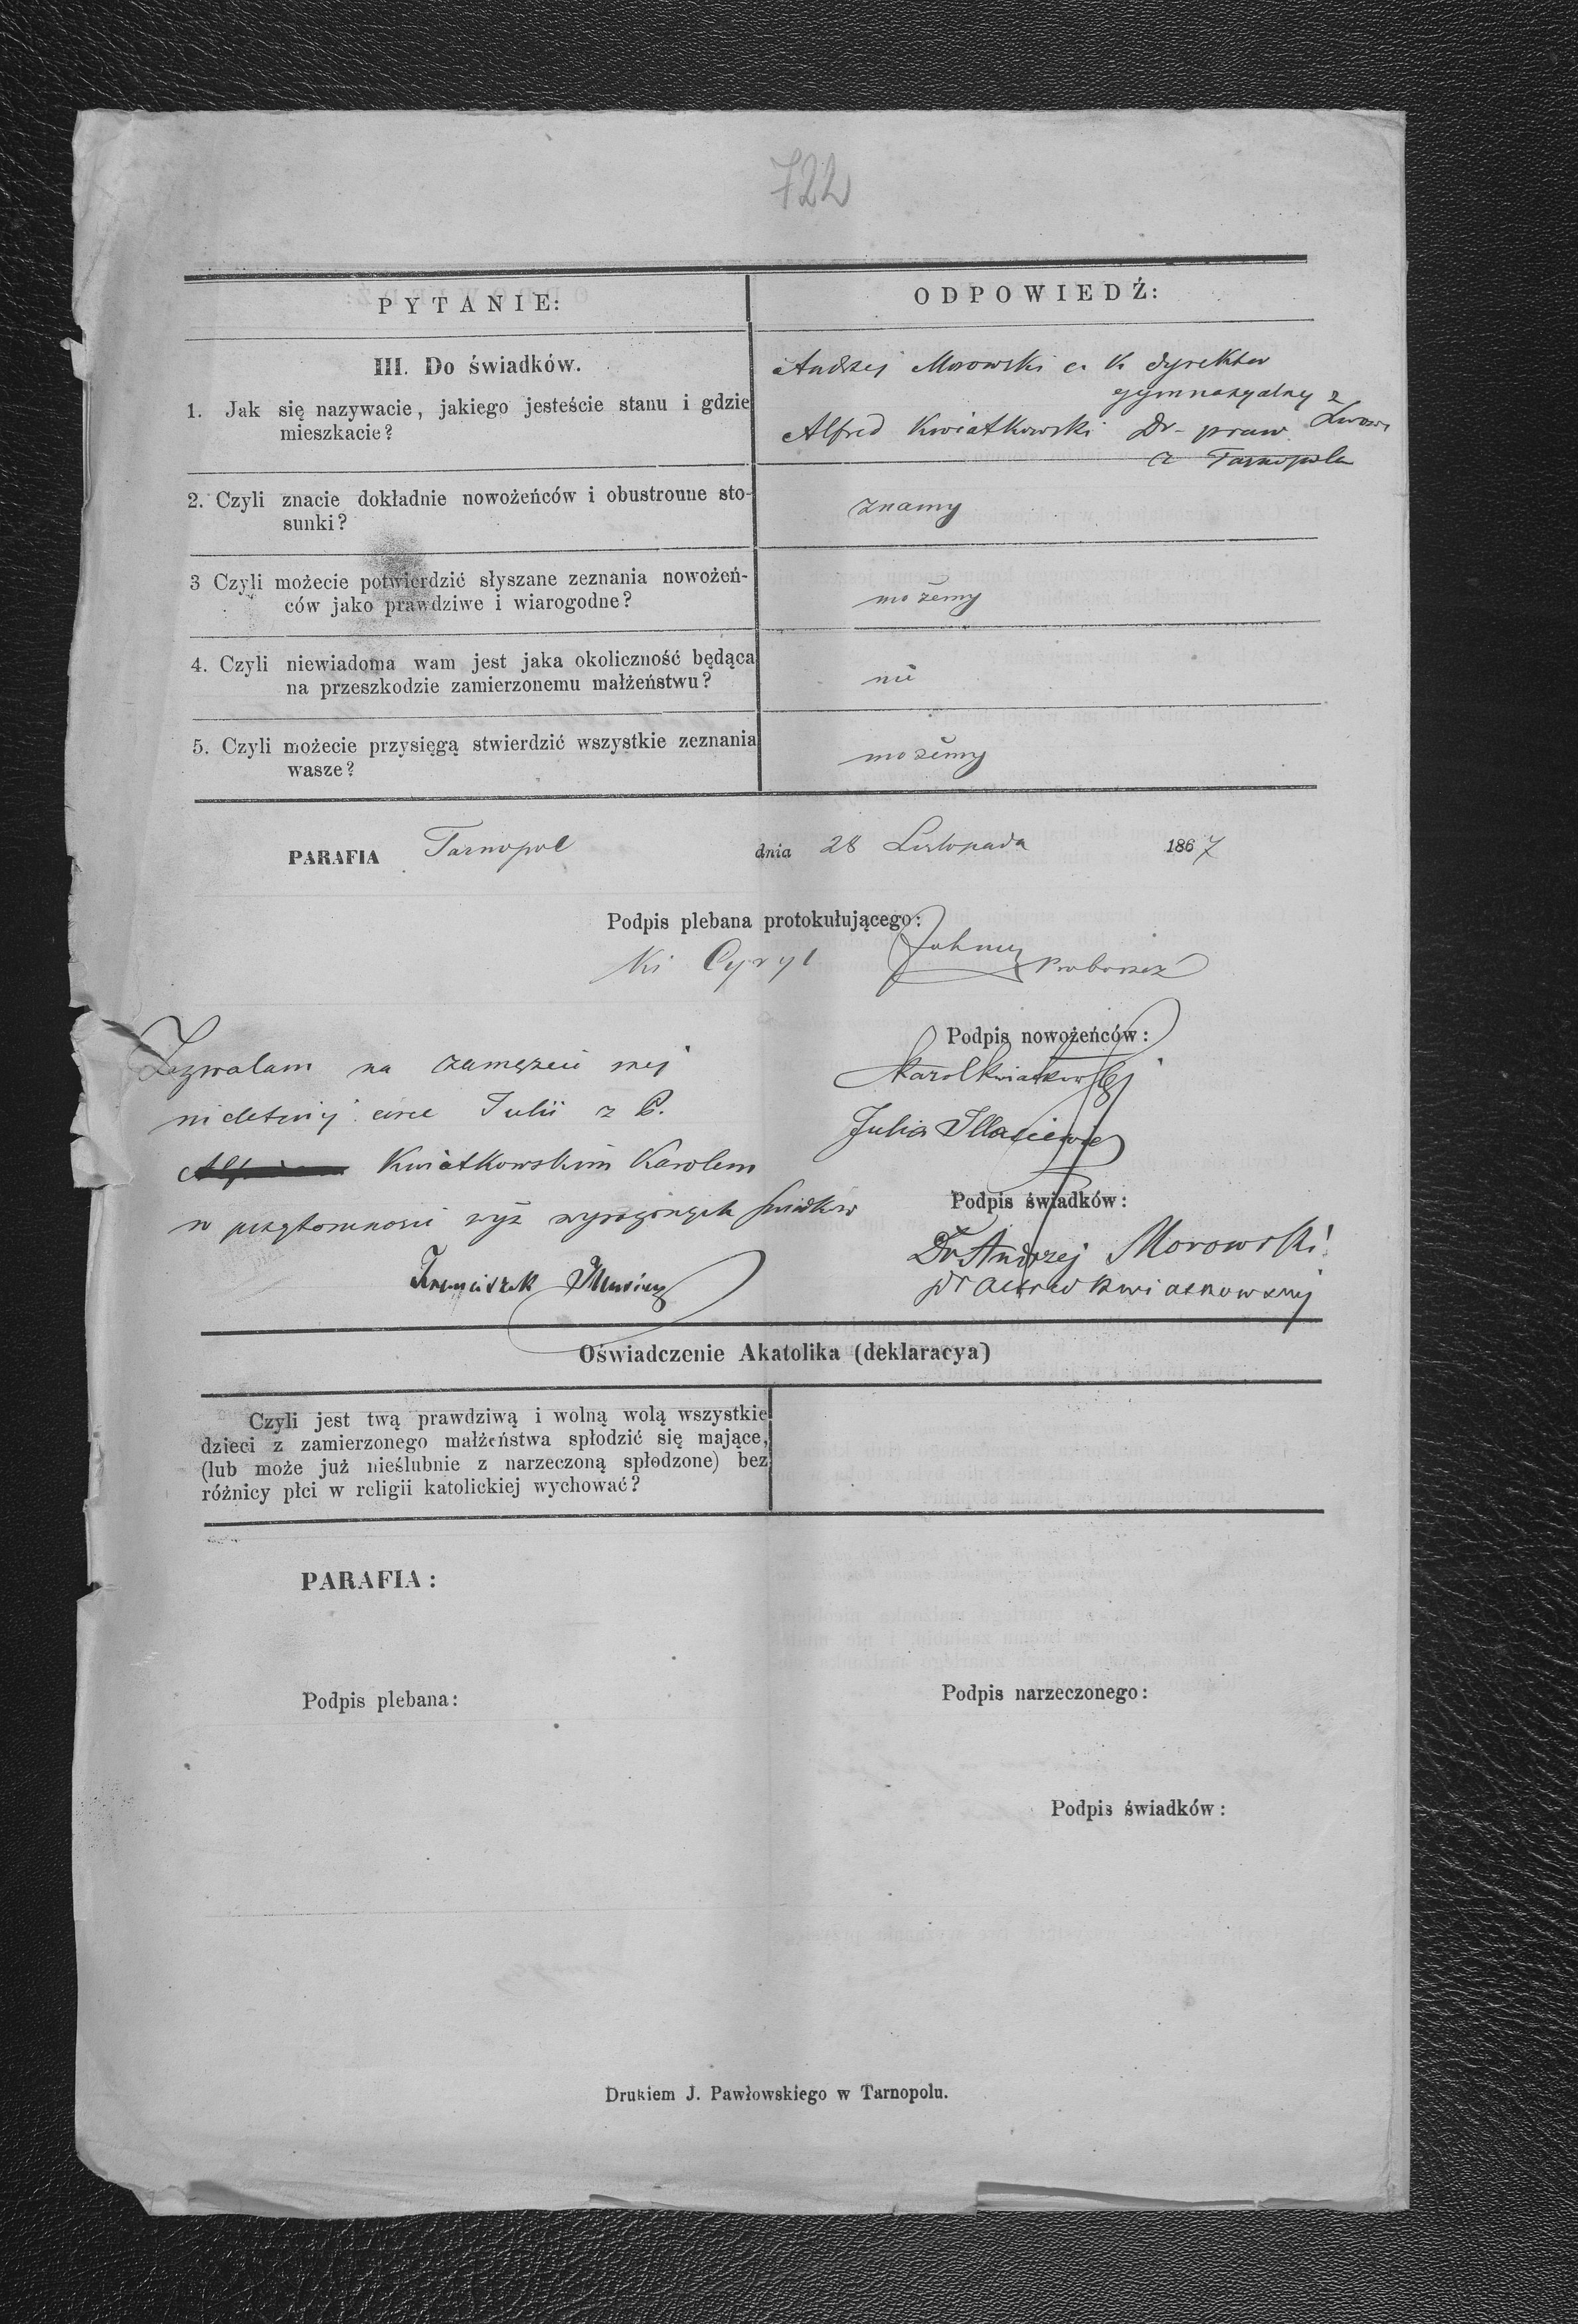 722
PYTANIE:
ODPOWIEDŹ:
III. Do świadków.
1. Jak się nazywacie, jakiego jesteście stanu i gdzie
mieszkacie?
Andrzej Morowski c. k. dyrektor
gymnazyalny z
Lwowa
Alfred Kwiatkowski Dr praw
z Tarnopola
2. Czyli znacie dokładnie nowożeńców i obustronne sto-
sunki?
znamy
3 Czyli możecie potwierdzić słyszane zeznania nowożeń-
ców jako prawdziwe i wiarogodne?
możemy
4. Czyli niewiadoma wam jest jaka okoliczność będąca
na przeszkodzie zamierzonemu małżeństwu?
nie
5. Czyli możecie przysięgą stwierdzić wszystkie zeznania
wasze?
możemy
PARAFIA Tarnopol dnia 28 Listopada 1867
Podpis plebana protokułującego:
Cyryl proboszcz
Podpis nowożeńców:
Karol Kwiatkowski
Julia
Zezwalam na zamęzcie mej
nieletniej córce Julii z P.
Kwiatkowskim Karolem
w przytomności wyż wyrażonych świadków
Franciszek
Podpis świadków:
Dr Andrzej Morowski
Dr Alfred Kwiatkowski
Oświadczenie Akatolika (deklaracya)
Czyli jest twą prawdziwą i wolną wolą wszystkie
dzieci z zamierzonego małżeństwa spłodzić się mające,
(lub może już nieślubnie z narzeczoną spłodzone) bez
różnicy płci w religii katolickiej wychować?
PARAFIA:
Podpis plebana:
Podpis narzeczonego:
Podpis świadków:
Drukiem J. Pawłowskiego w Tarnopolu.